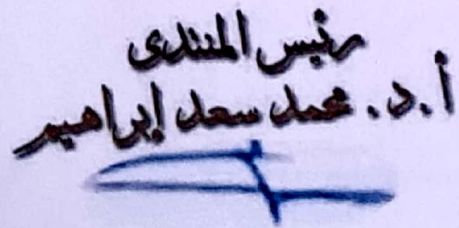 رئيس المنتدى
أ.د. محمد سعد إبراهيم